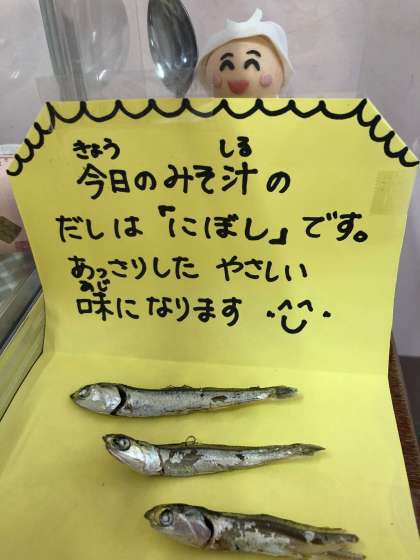 きょう しる
今日のみそ汁の
だしは「にぼし」です。
あっさりした やさしい
あじ
味になります